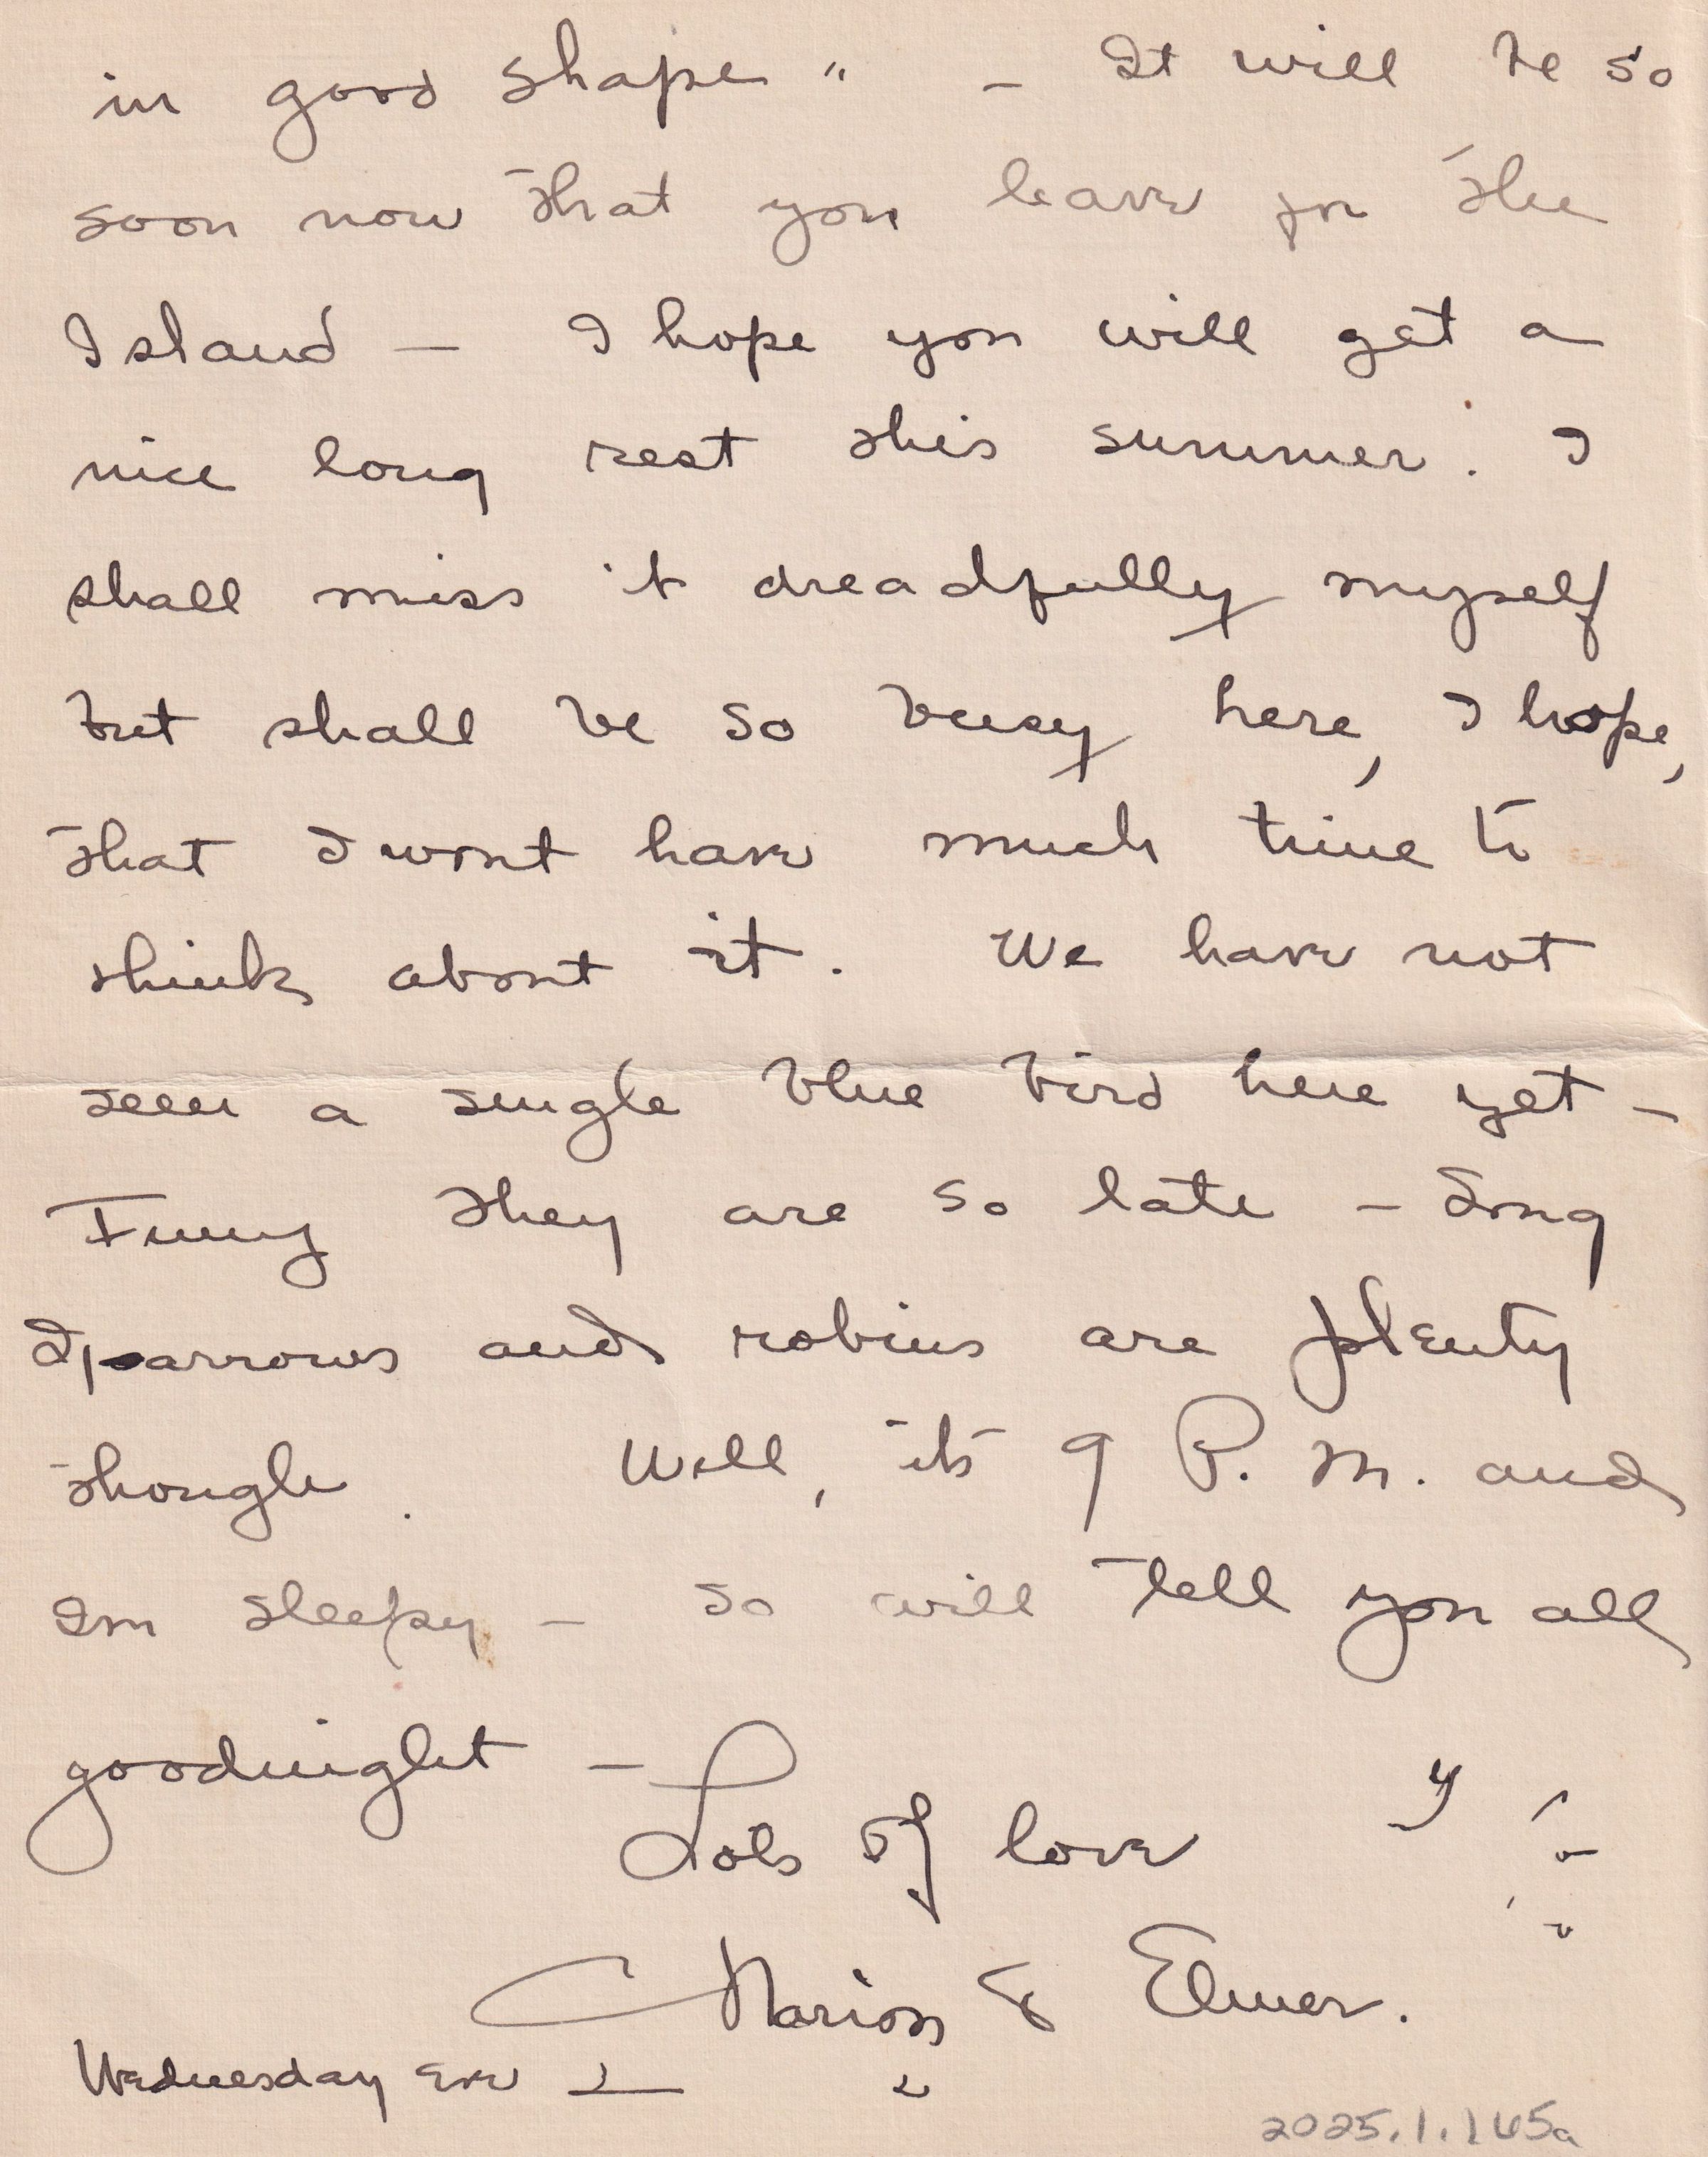 in good shape" - It will be so
soon now that you leave for the
Island - I hope you will get a
nice long rest this summer. I
shall miss it dreadfully myself
but shall be so busy here, I hope,
that I wont have much time to
think about it. We have not
seen a single blue bird here yet -
Funny they are so late - Song
Sparrows and robins are plenty
though. Well, its 9 P. M. and
Im sleepy - so will tell you all
goodnight -
Lots of love
Marion & Elmer.
Wednesday eve
2025.1.165a